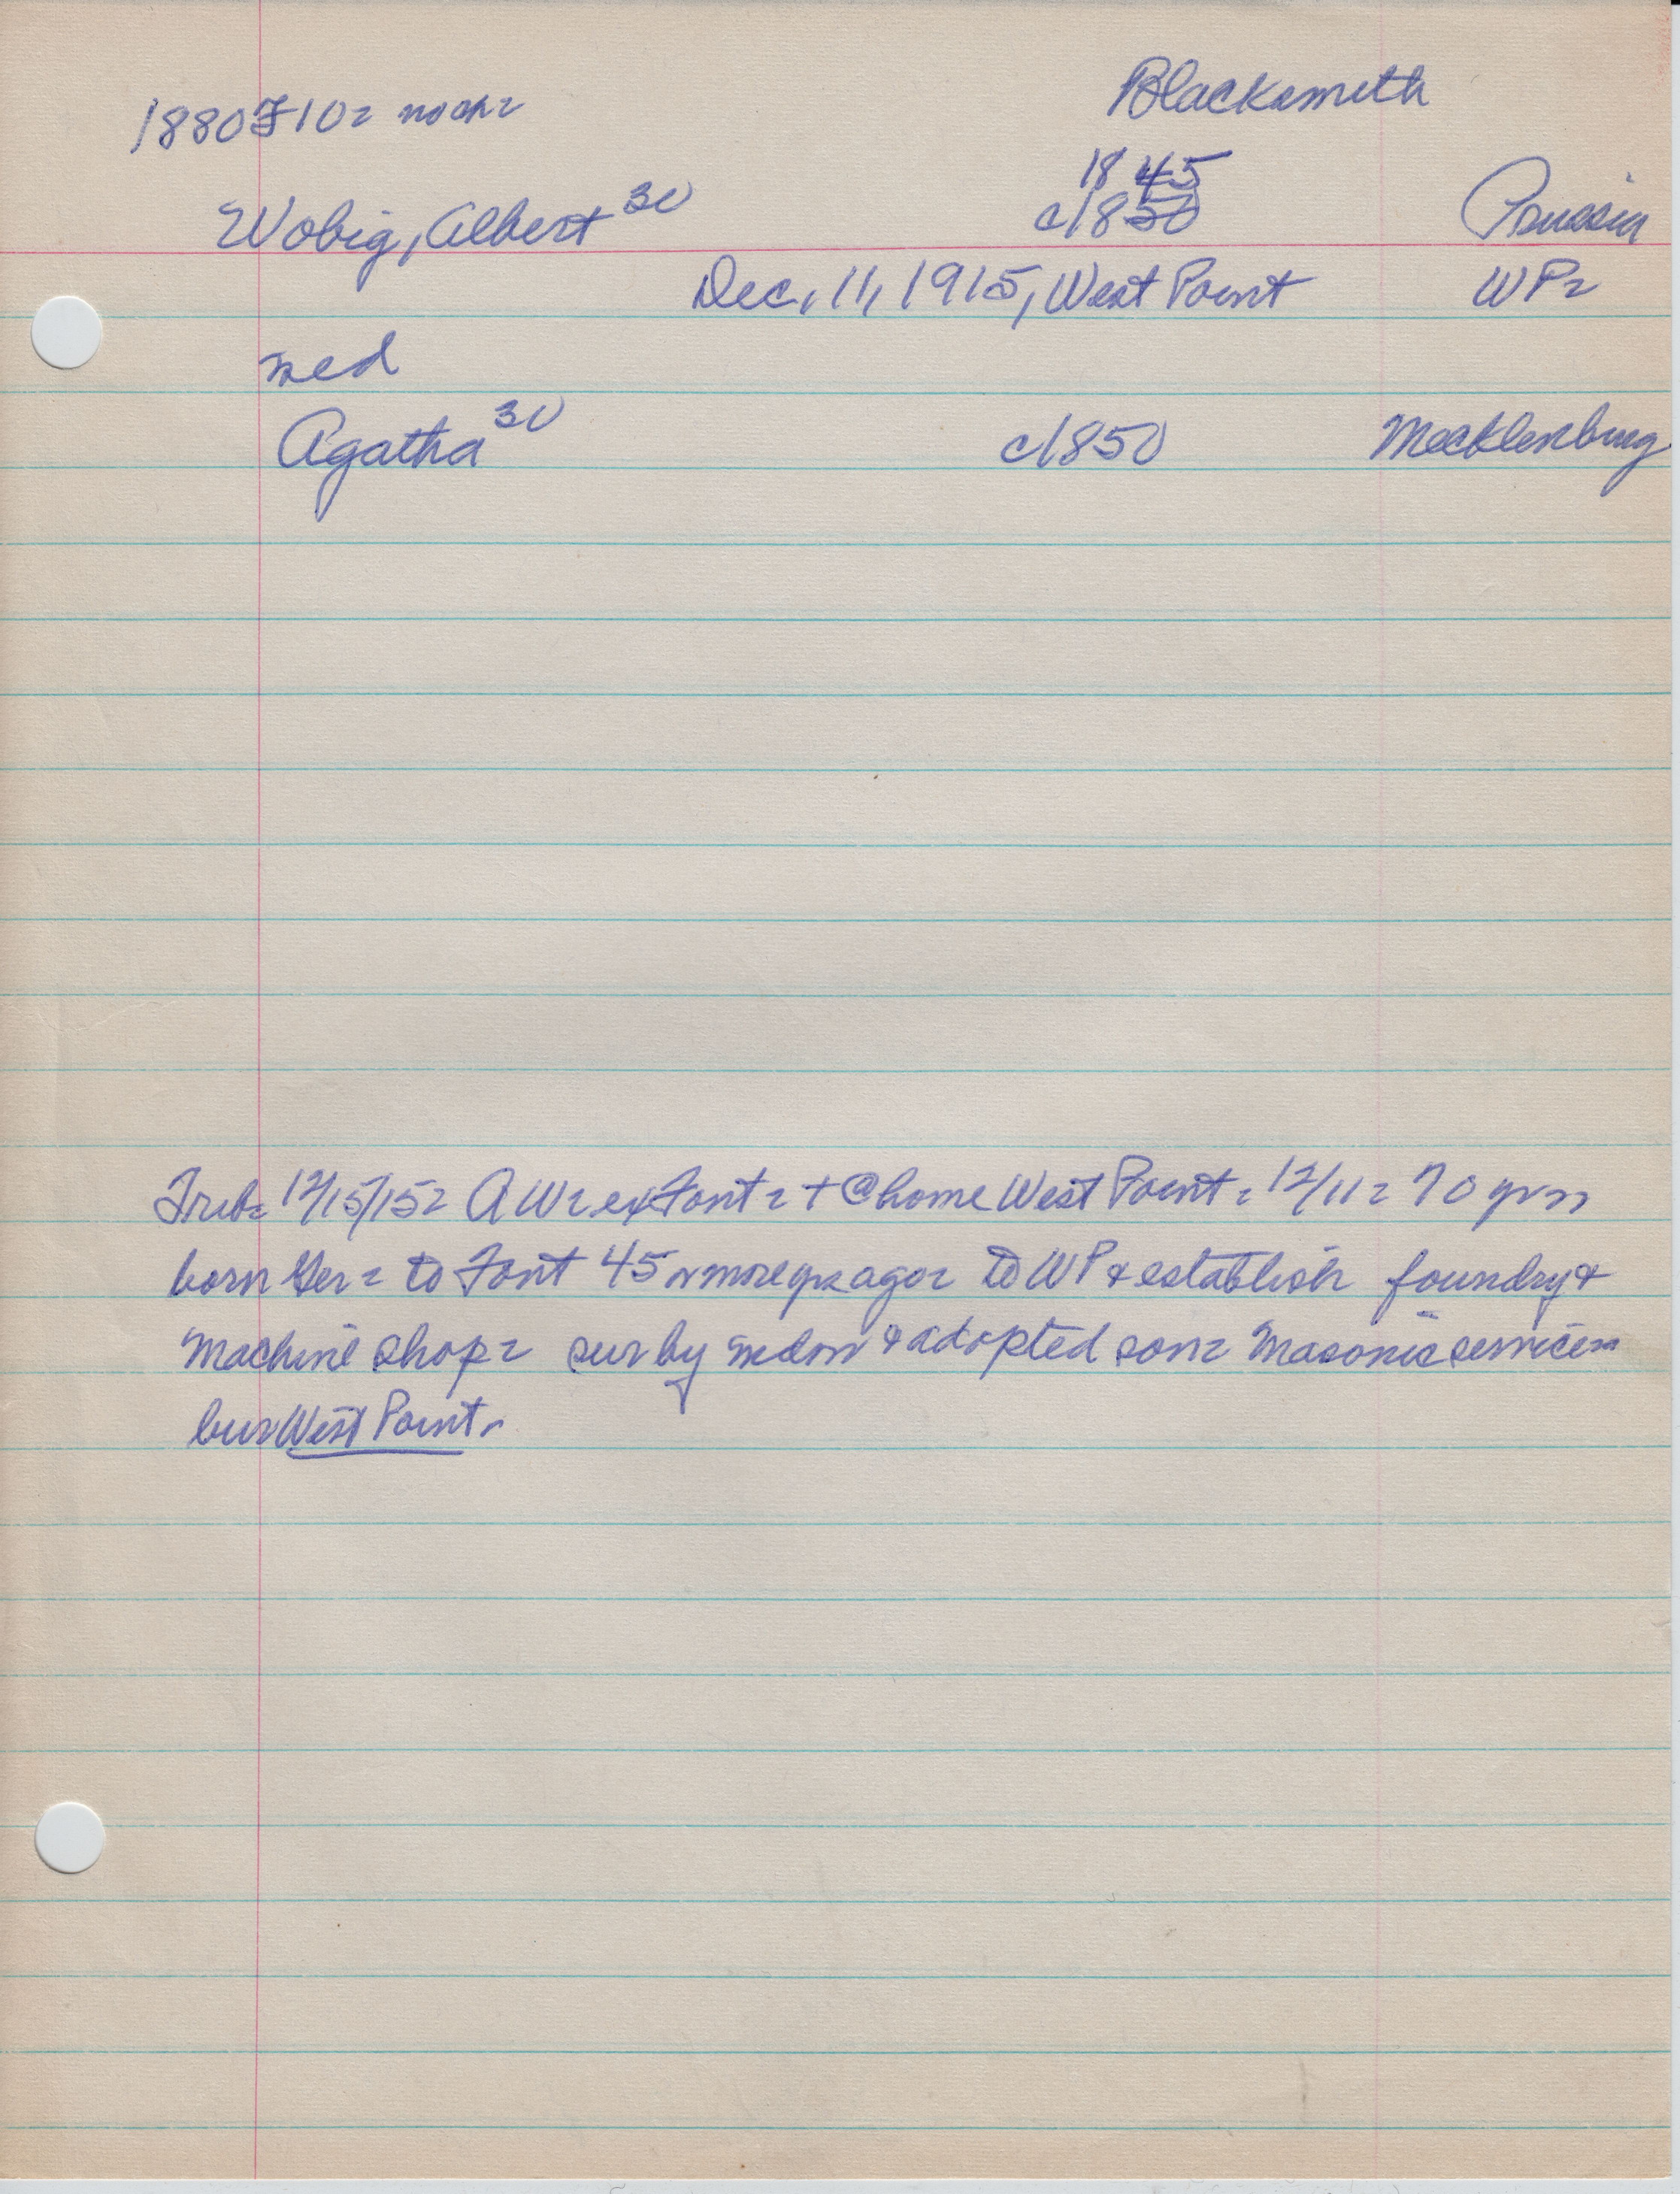 Blacksmith
1880 F10= no ch=
1845
Wobig, Albert 30 c1850 Prussia
Dec. 11, 1915, West Point WP=
med
Agatha 30 c1850 Mecklenburg
Trib= 12/15/15= AW= ex Font= + @ home West Point= 12/11= 70 yrs
born Ger= to Font 45 or more yrs ago= to WP & establish foundry &
machine shop= sur by widow & adopted son= Masonic services
bur West Point.